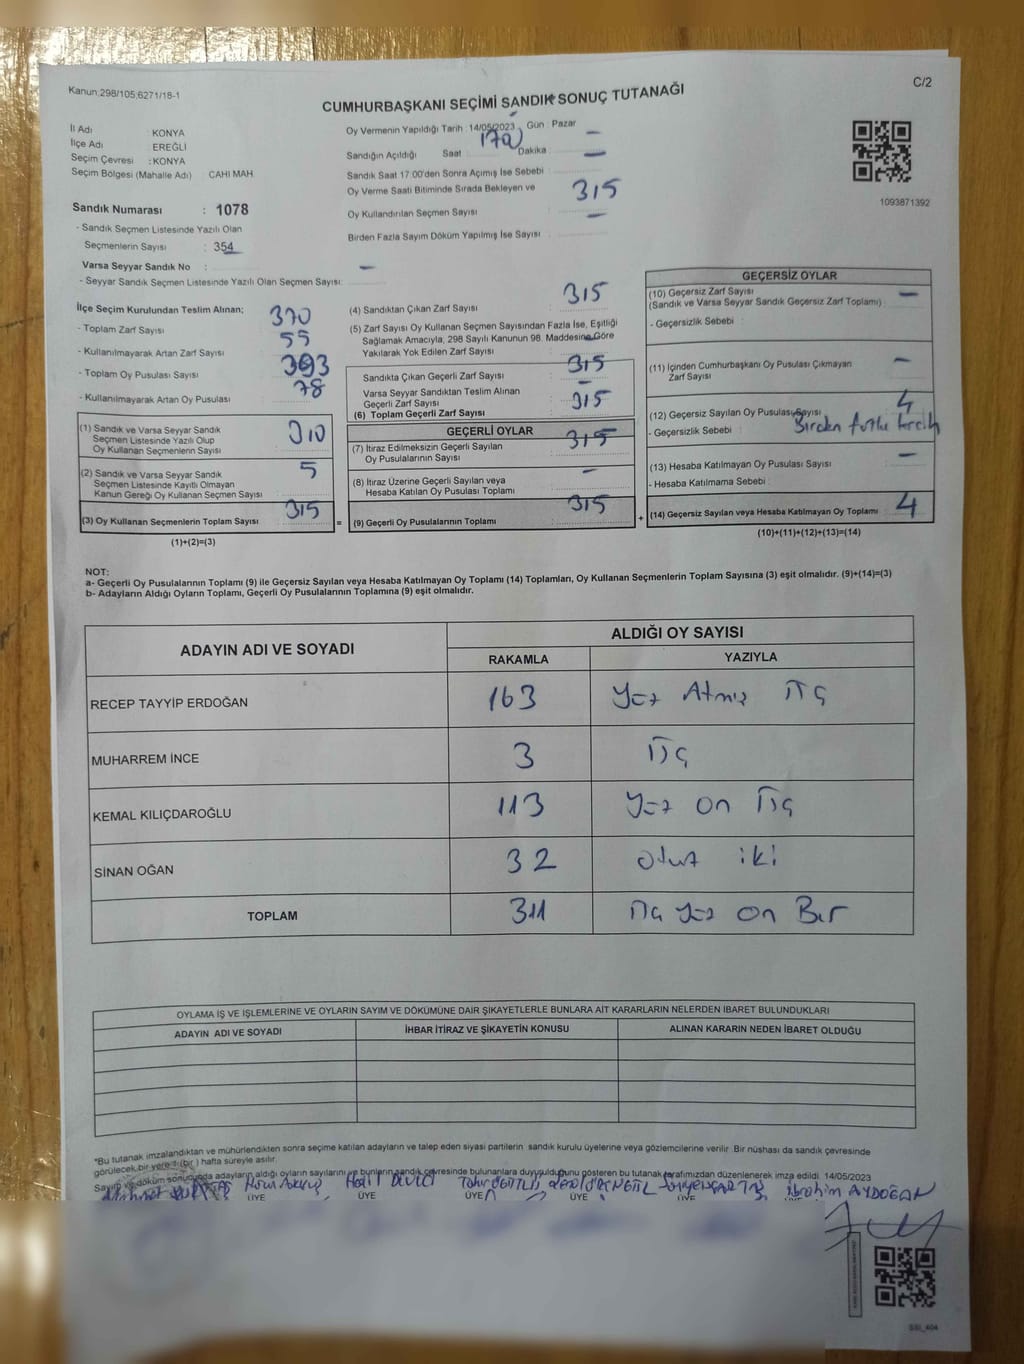 Kanun,298/105,6271/18-1
C/2
CUMHURBAŞKANI SEÇİMİ SANDIK SONUÇ TUTANAĞI
İl Adı KONYA
İlçe Adı EREĞLİ
Seçim Çevresi : KONYA
Seçim Bölgesi (Mahalle Adı) CAHI MAH.
Sandık Numarası : 1078
- Sandık Seçmen Listesinde Yazılı Olan
Seçmenlerin Sayısı : 354
Varsa Seyyar Sandık No :
- Seyyar Sandık Seçmen Listesinde Yazılı Olan Seçmen Sayısı:
Oy Vermenin Yapıldığı Tarih : 14/05/2023 , Gün : Pazar
Sandığın Açıldığı Saat 170 Dakika —
Sandık Saat 17:00'den Sonra Açımış İse Sebebi —
Oy Verme Saati Bitiminde Sırada Bekleyen ve
Oy Kullandırılan Seçmen Sayısı 315
Birden Fazla Sayım Döküm Yapılmış İse Sayısı —
1093871392
İlçe Seçim Kurulundan Teslim Alınan;
- Toplam Zarf Sayısı 370
- Kullanılmayarak Artan Zarf Sayısı 55
- Toplam Oy Pusulası Sayısı 393
- Kullanılmayarak Artan Oy Pusulası 78
(1) Sandık ve Varsa Seyyar Sandık
Seçmen Listesinde Yazılı Olup
Oy Kullanan Seçmenlerin Sayısı 310
(2) Sandık ve Varsa Seyyar Sandık
Seçmen Listesinde Kayıtlı Olmayan
Kanun Gereği Oy Kullanan Seçmen Sayısı 5
(3) Oy Kullanan Seçmenlerin Toplam Sayısı 315
(1)+(2)=(3)
(4) Sandıktan Çıkan Zarf Sayısı 315
(5) Zarf Sayısı Oy Kullanan Seçmen Sayısından Fazla İse, Eşitliği
Sağlamak Amacıyla, 298 Sayılı Kanunun 98. Maddesine Göre
Yakılarak Yok Edilen Zarf Sayısı —
Sandıkta Çıkan Geçerli Zarf Sayısı 315
Varsa Seyyar Sandıktan Teslim Alınan
Geçerli Zarf Sayısı —
(6) Toplam Geçerli Zarf Sayısı 315
GEÇERLİ OYLAR
(7) İtiraz Edilmeksizin Geçerli Sayılan
Oy Pusulalarının Sayısı 315
(8) İtiraz Üzerine Geçerli Sayılan veya
Hesaba Katılan Oy Pusulası Toplamı —
= (9) Geçerli Oy Pusulalarının Toplamı 315
GEÇERSİZ OYLAR
(10) Geçersiz Zarf Sayısı —
(Sandık ve Varsa Seyyar Sandık Geçersiz Zarf Toplamı)
- Geçersizlik Sebebi :
(11) İçinden Cumhurbaşkanı Oy Pusulası Çıkmayan
Zarf Sayısı —
(12) Geçersiz Sayılan Oy Pusulası Sayısı 4
- Geçersizlik Sebebi : Birden fazla tercih
(13) Hesaba Katılmayan Oy Pusulası Sayısı —
- Hesaba Katılmama Sebebi
+ (14) Geçersiz Sayılan veya Hesaba Katılmayan Oy Toplamı 4
(10)+(11)+(12)+(13)=(14)
NOT:
a- Geçerli Oy Pusulalarının Toplamı (9) ile Geçersiz Sayılan veya Hesaba Katılmayan Oy Toplamı (14) Toplamları, Oy Kullanan Seçmenlerin Toplam Sayısına (3) eşit olmalıdır. (9)+(14)=(3)
b- Adayların Aldığı Oyların Toplamı, Geçerli Oy Pusulalarının Toplamına (9) eşit olmalıdır.
ADAYIN ADI VE SOYADI
ALDIĞI OY SAYISI
RAKAMLA YAZIYLA
RECEP TAYYİP ERDOĞAN 163 Yüz Atmış Üç
MUHARREM İNCE 3 Üç
KEMAL KILIÇDAROĞLU 113 Yüz on Üç
SİNAN OĞAN 32 otuz iki
TOPLAM 311 Üç Yüz on Bir
OYLAMA İŞ VE İŞLEMLERİNE VE OYLARIN SAYIM VE DÖKÜMÜNE DAİR ŞİKAYETLERLE BUNLARA AİT KARARLARIN NELERDEN İBARET BULUNDUKLARI
ADAYIN ADI VE SOYADI İHBAR İTİRAZ VE ŞİKAYETİN KONUSU ALINAN KARARIN NEDEN İBARET OLDUĞU
*Bu tutanak imzalandıktan ve mühürlendikten sonra seçime katılan adayların ve talep eden siyasi partilerin sandık kurulu üyelerine veya gözlemcilerine verilir. Bir nüshası da sandık çevresinde
görülecek bir yere 1 (bir ) hafta süreyle asılır.
Sayım ve döküm sonucunda adayların aldığı oyların sayılarını ve bunların sandık çevresinde bulunanlara duyurulduğunu gösteren bu tutanak tarafımızdan düzenlenerek imza edildi. 14/05/2023
Halil DEVECİ İbrahim AYDOĞAN
ÜYE ÜYE ÜYE ÜYE ÜYE